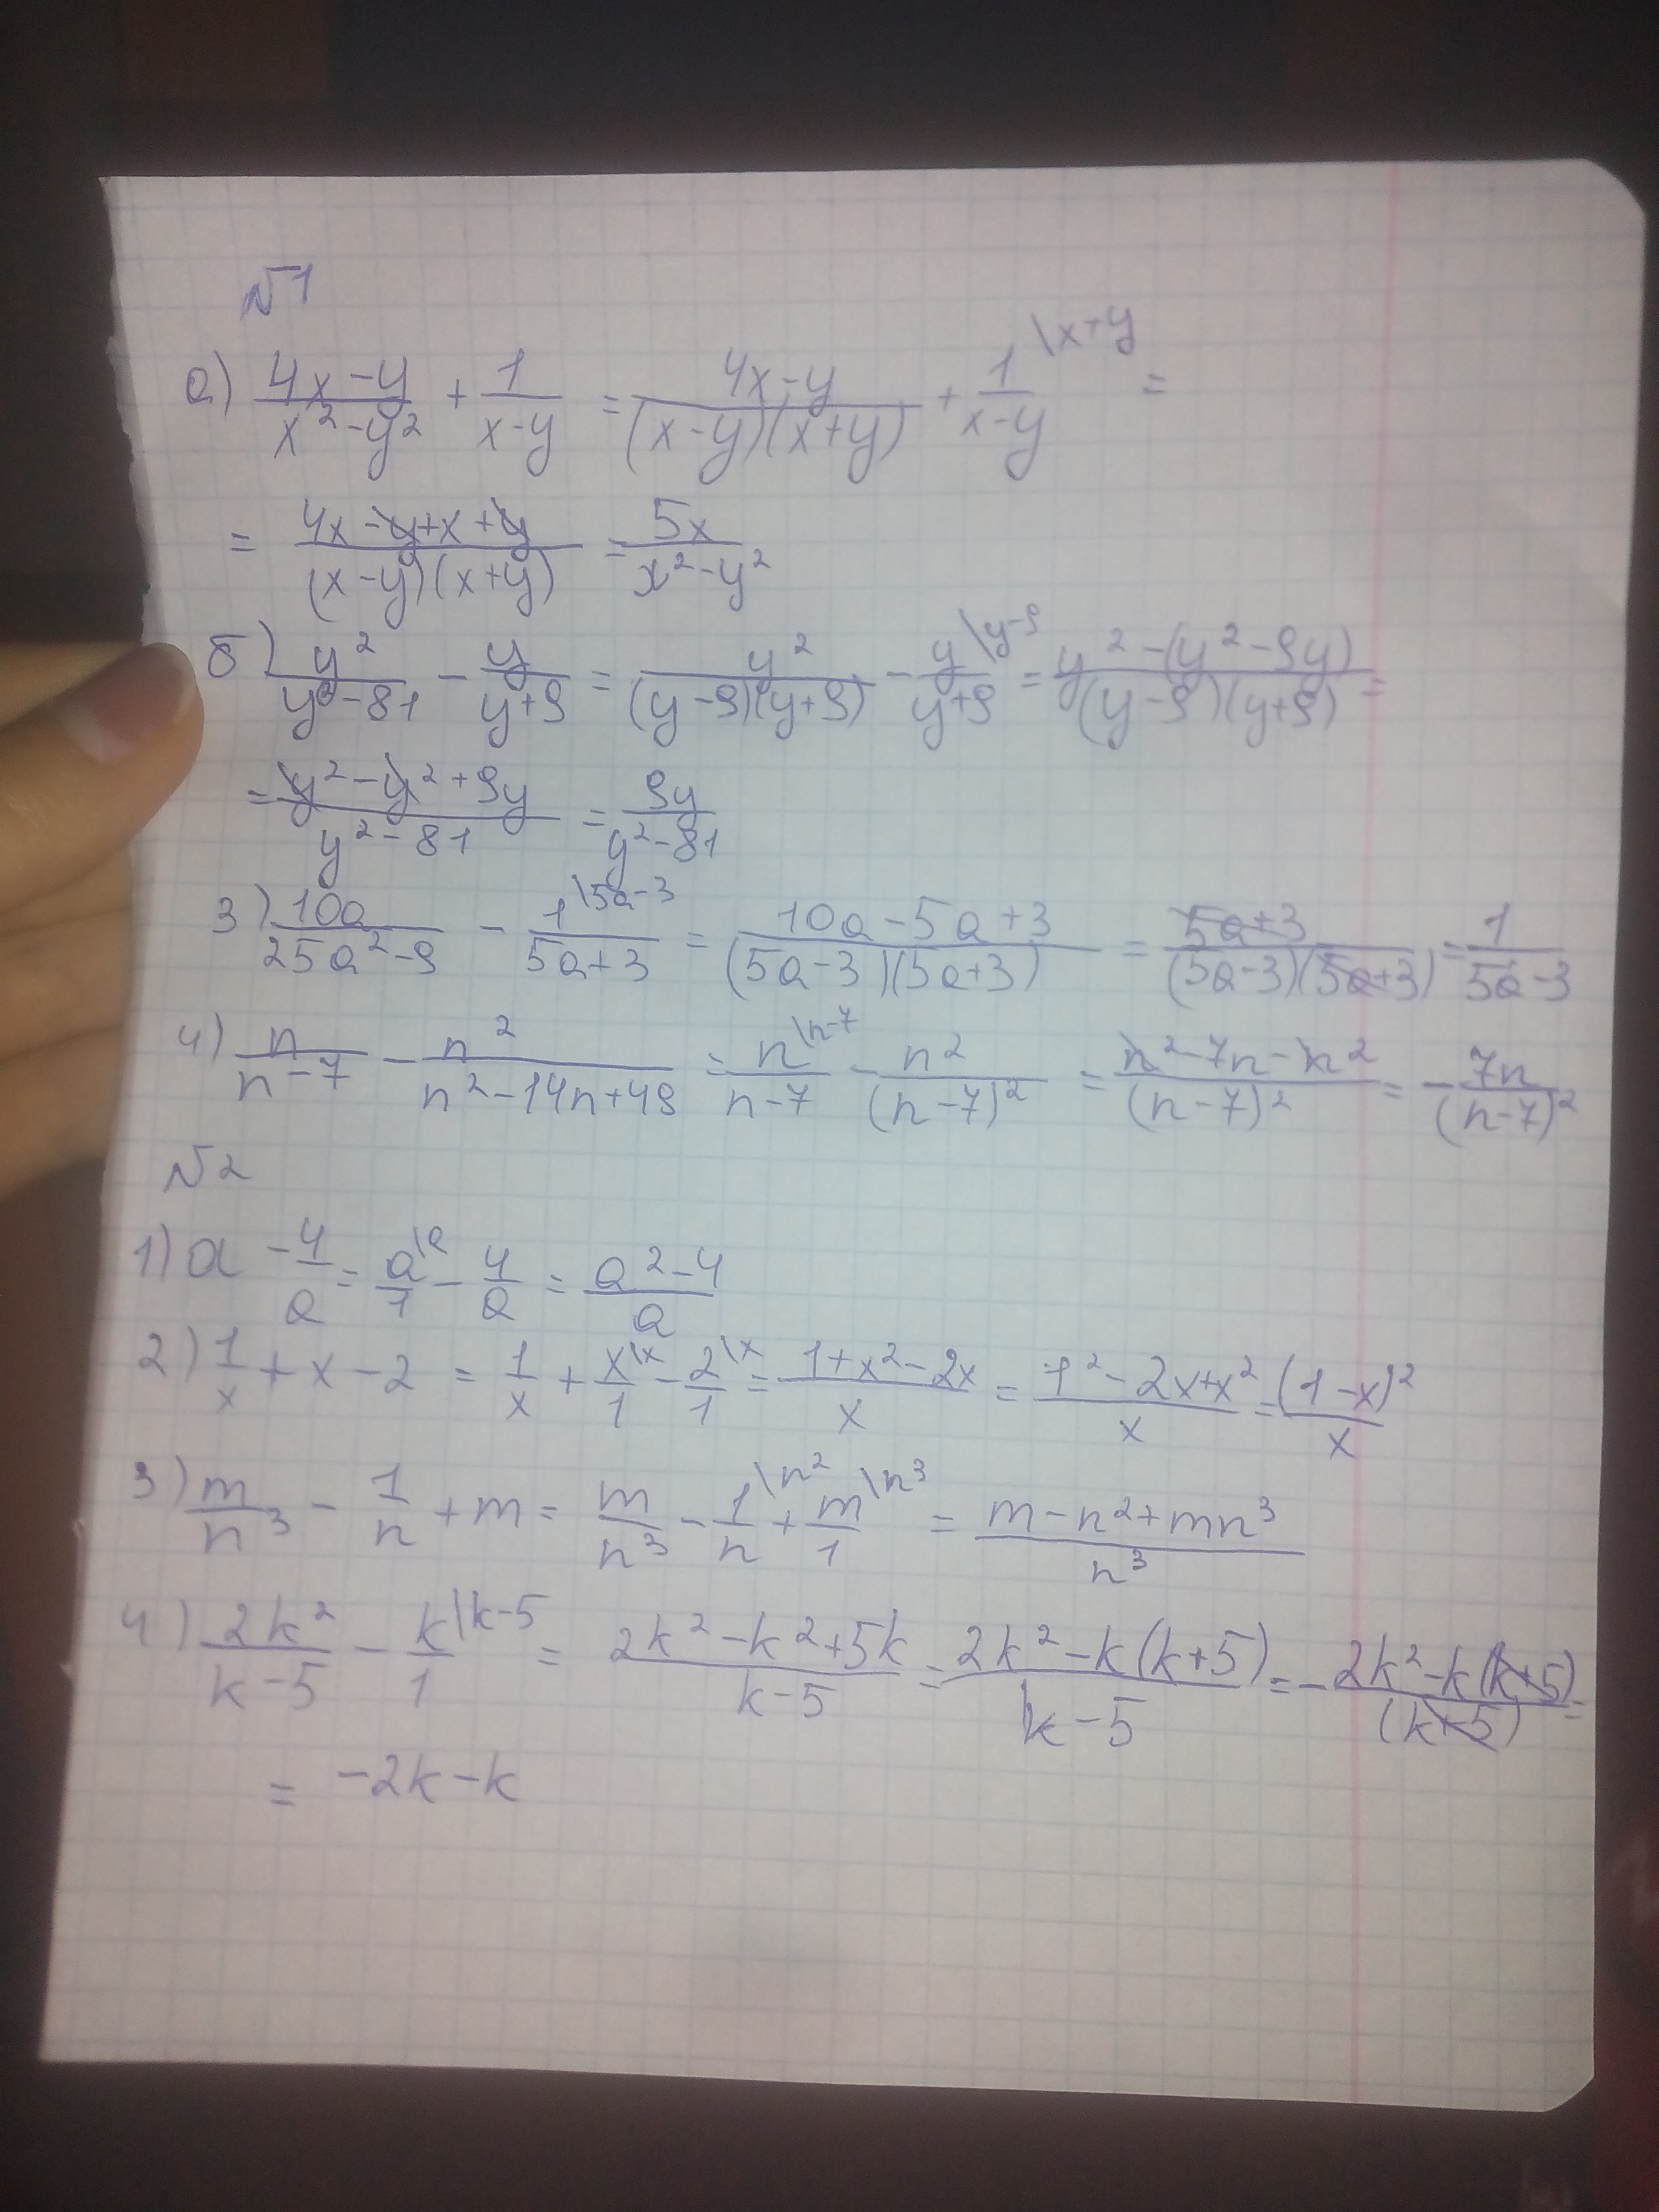 №1
а) (4x-y)/(x²-y²) + 1/(x-y) = (4x-y)/((x-y)(x+y)) + 1/(x-y) \x+y =
= (4x-y+x+y)/((x-y)(x+y)) = 5x/(x²-y²)
б) y²/(y²-81) - y/(y+9) = y²/((y-9)(y+9)) - y/(y+9) \y-9 = (y²-(y²-9y))/((y-9)(y+9)) =
= (y²-y²+9y)/(y²-81) = 9y/(y²-81)
3) 10a/(25a²-9) - 1/(5a+3) \5a-3 = (10a-5a+3)/((5a-3)(5a+3)) = (5a+3)/((5a-3)(5a+3)) = 1/(5a-3)
4) n/(n-7) - n²/(n²-14n+49) = n/(n-7) \n-7 - n²/(n-7)² = (n²-7n-n²)/(n-7)² = - 7n/(n-7)²
№2
1) a - 4/a = a/1 \a - 4/a = (a²-4)/a
2) 1/x + x - 2 = 1/x + x/1 \x - 2/1 \x = (1+x²-2x)/x = (1²-2x+x²)/x = (1-x)²/x
3) m/n³ - 1/n + m = m/n³ - 1/n \n² + m/1 \n³ = (m-n²+mn³)/n³
4) 2k²/(k-5) - k/1 \k-5 = (2k²-k²+5k)/(k-5) = (2k²-k(k+5))/(k-5) = - (2k²-k(k+5))/(k+5) =
= -2k-k